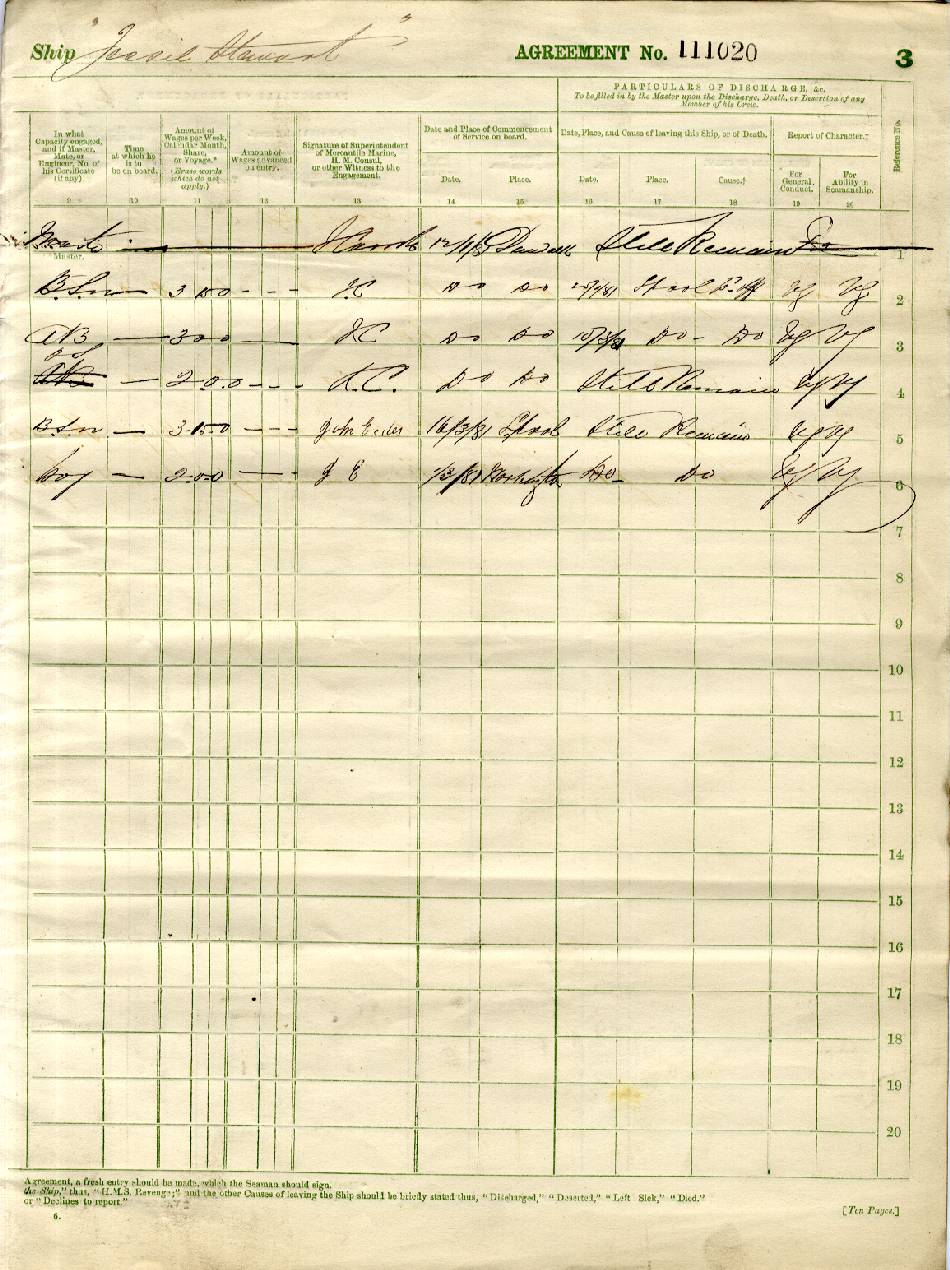 Ship "Jessie Stewart" AGREEMENT No. 111020 3
PARTICULARS OF DISCHARGE, &c.
To be filled in by the Master upon the Discharge, Death, or Desertion of any
Member of his Crew.
In what Capacity engaged, and if Master, Mate, or Engineer, No. of his Certificate (if any)
Time at which he is to be on board.
Amount of Wages per Week, Calendar Month, Share, or Voyage.* (*Erase words which do not apply.)
Amount of Wages advanced on entry.
Signature of Superintendent of Mercantile Marine, H. M. Consul, or other Witness to the Engagement.
Date and Place of Commencement of Service on board.
Date, Place, and Cause of leaving this Ship, or of Death.
Report of Character.†
Reference No.
Date. Place. Date. Place. Cause.† For General Conduct. For Ability in Seamanship.
9 10 11 12 13 14 15 16 17 18 19 20
Master Still Remains 1
Master.
B.Sn 3 15 0 J.C Do Do Vg Vg 2
AB 3 0 0 J.C Do Do Do Do Vg Vg 3
2 0 0 J.C. Do Do Still Remains Vg Vg 4
B.Sn 3 15 0 16/3/81 Lpool Still Remains Vg Vg 5
boy 2 0 0 J E Do Do Vg Vg 6
7
8
9
10
11
12
13
14
15
16
17
18
19
20
Agreement, a fresh entry should be made, which the Seaman should sign.
the Ship," thus, "H.M.S. Revenge;" and the other Causes of leaving the Ship should be briefly stated thus, "Discharged," "Deserted," "Left Sick," "Died."
or "Declines to report."
6.
[Ten Pages.]